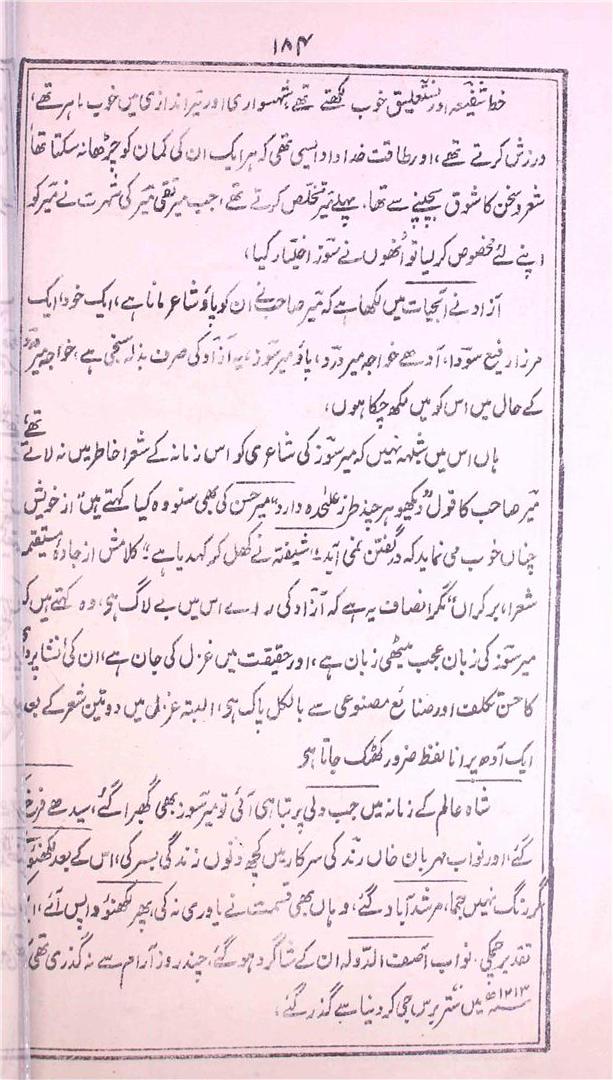 ۱۸۴
خط شفیعہ اور نستعلیق خوب لکھتے تھے، شہسواری اور تیر اندازی میں خوب ماہر تھے،
ورزش کرتے تھے، اور طاقت خداداد ایسی تھی کہ ہر ایک ان کی کمان کو چڑھا نہ سکتا تھا
شعر و سخن کا شوق بچپنے سے تھا، پہلے میر تخلص کرتے تھے، جب میر تقی میر کی شہرت نے میر کو
اپنے لئے مخصوص کر لیا تو انھوں نے سوز اختیار کیا،
آزاد نے آبحیات میں لکھا ہے کہ میر صاحب نے ان کو پاؤ شاعر مانا ہے، ایک خود، ایک
مرزا رفیع سودا، آدھے خواجہ میر درد، پاؤ میر سوز، یہ آزاد کی صرف بذلہ سنجی ہے، خواجہ میر درد
کے حال میں اس کو میں لکھ چکا ہوں،
ہاں اس میں شبہہ نہیں کہ میر سوز کی شاعری کو اس زمانہ کے شعرا خاطر میں نہ لاتے تھے
میر صاحب کا قول دیکھو ہر چند طرز علٰحدہ دارد" میر حسن کی بھی سنو وہ کیا کہتے ہیں" از خویش
چناں خوب می نماید کہ در گفتن نمی آید"، شیفتہ نے کھل کر کہدیا ہے "کلامش از جادۂ مستقیمہ
شعرا، بر کراں" مگر انصاف یہ ہے کہ آزاد کی راے اس میں بے لاگ ہی، وہ کہتے ہیں کہ
میر سوز کی زبان عجب میٹھی زبان ہے، اور حقیقت میں غزل کی جان ہے، ان کی انشا پردازی
کا حسن تکلف اور صنائع مصنوعی سے بالکل پاک ہی، البتہ غزل میں دو تین شعر کے بعد
ایک آدھ پرانا لفظ ضرور کھٹک جاتا ہی
شاہ عالم کے زمانہ میں جب دلی پر تباہی آئی تو میر سوز بھی گھبرا گئے، سیدھے
گئے، اور نواب مہربان خاں رند کی سرکار میں کچھ دنوں زندگی بسر کی، اس کے بعد لکھنؤ
مگر رنگ نہیں جما، مرشد آباد گئے، وہاں بھی قسمت نے یاوری نہ کی، پھر لکھنؤ واپس آئے،
تقدیر چمکی، نواب آصف الدولہ ان کے شاگرد ہو گئے، چند روز آرام سے نہ گذری تھی
۱۲۱۳ھ میں ستر برس جی کر دنیا سے گذر گئے،